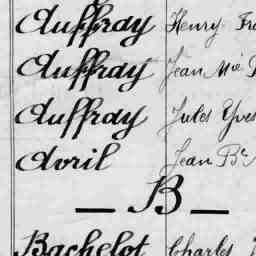 Auffray Henry Fra
Auffray Jean Mie
Auffray Jules Yves
Avril Jean Be
— B —
Bachelot Charles